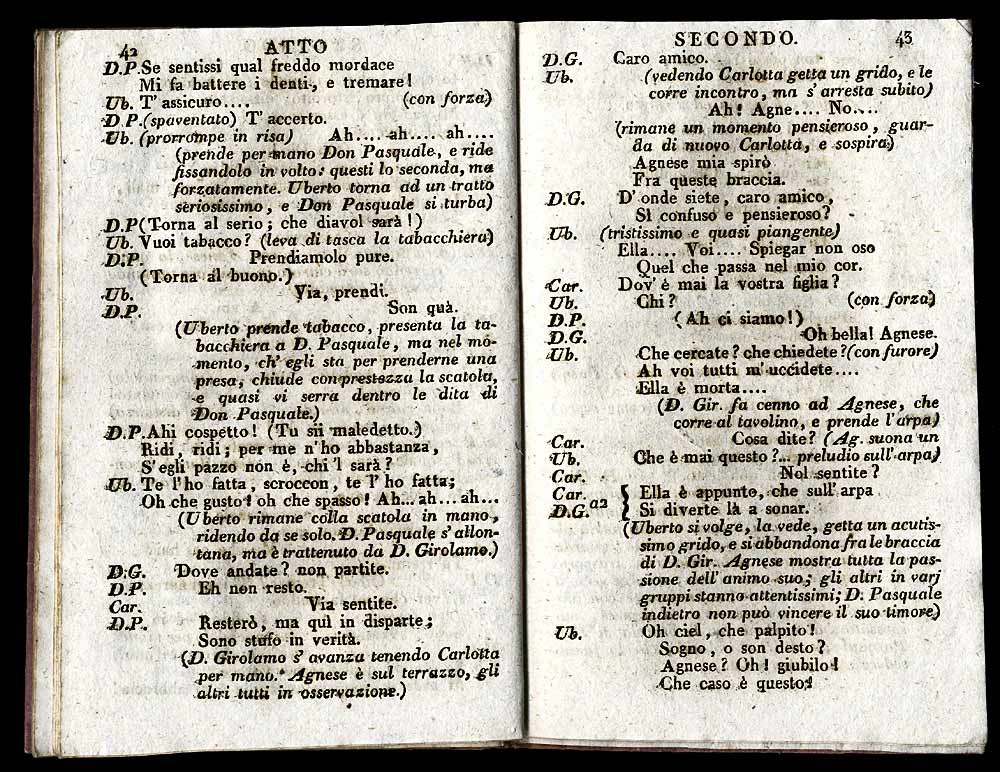 42 ATTO
D.P. Se sentissi qual freddo mordace
Mi fa battere i denti, e tremare!
Ub. T' assicuro.... (con forza)
D.P. (spaventato) T' accerto.
Ub. (prorrompe in risa) Ah.... ah.... ah....
(prende per mano Don Pasquale, e ride
fissandolo in volto: questi lo seconda, ma
forzatamente. Uberto torna ad un tratto
seriosissimo, e Don Pasquale si turba)
D.P. (Torna al serio; che diavol sarà!)
Ub. Vuoi tabacco? (leva di tasca la tabacchiera)
D.P. Prendiamolo pure.
(Torna al buono.)
Ub. Via, prendi.
D.P. Son quà.
(Uberto prende tabacco, presenta la ta-
bacchiera a D. Pasquale, ma nel mo-
mento, ch' egli sta per prenderne una
presa, chiude con prestezza la scatola,
e quasi vi serra dentro le dita di
Don Pasquale.)
D.P. Ahi cospetto! (Tu sii maledetto.)
Ridi, ridi; per me n'ho abbastanza,
S'egli pazzo non è, chi 'l sarà?
Ub. Te l'ho fatta, scroccon, te l' ho fatta;
Oh che gusto! oh che spasso! Ah... ah... ah...
(Uberto rimane colla scatola in mano,
ridendo da se solo. D. Pasquale s' allon-
tana, ma è trattenuto da D. Girolamo.)
D.G. Dove andate? non partite.
D.P. Eh non resto.
Car. Via sentite.
D.P. Resterò, ma quì in disparte;
Sono stufo in verità.
(D. Girolamo s' avanza tenendo Carlotta
per mano. Agnese è sul terrazzo, gli
altri tutti in osservazione.)
SECONDO. 43
D.G. Caro amico.
Ub. (vedendo Carlotta getta un grido, e le
corre incontro, ma s' arresta subito)
Ah! Agne.... No....
(rimane un momento pensieroso, guar-
da di nuovo Carlotta, e sospira)
Agnese mia spirò
Fra queste braccia.
D.G. D' onde siete, caro amico,
Sì confuso e pensieroso?
Ub. (tristissimo e quasi piangente)
Ella.... Voi.... Spiegar non oso
Quel che passa nel mio cor.
Car. Dov' è mai la vostra figlia?
Ub. Chi? (con forza)
D.P. (Ah ci siamo!)
D.G. Oh bella! Agnese.
Ub. Che cercate? che chiedete? (con furore)
Ah voi tutti m' uccidete....
Ella è morta....
(D. Gir. fa cenno ad Agnese, che
corre al tavolino, e prende l'arpa)
Car. Cosa dite? (Ag. suona un
Ub. Che è mai questo?... preludio sull' arpa)
Car. Nol sentite?
Car. } Ella è appunto, che sull' arpa
D.G. a2 Si diverte là a sonar.
(Uberto si volge, la vede, getta un acutis-
simo grido, e si abbandona fra le braccia
di D. Gir. Agnese mostra tutta la pas-
sione dell' animo suo; gli altri in varj
gruppi stanno attentissimi; D. Pasquale
indietro non può vincere il suo timore)
Ub. Oh ciel, che palpito!
Sogno, o son desto?
Agnese? Oh! giubilo!
Che caso è questo!